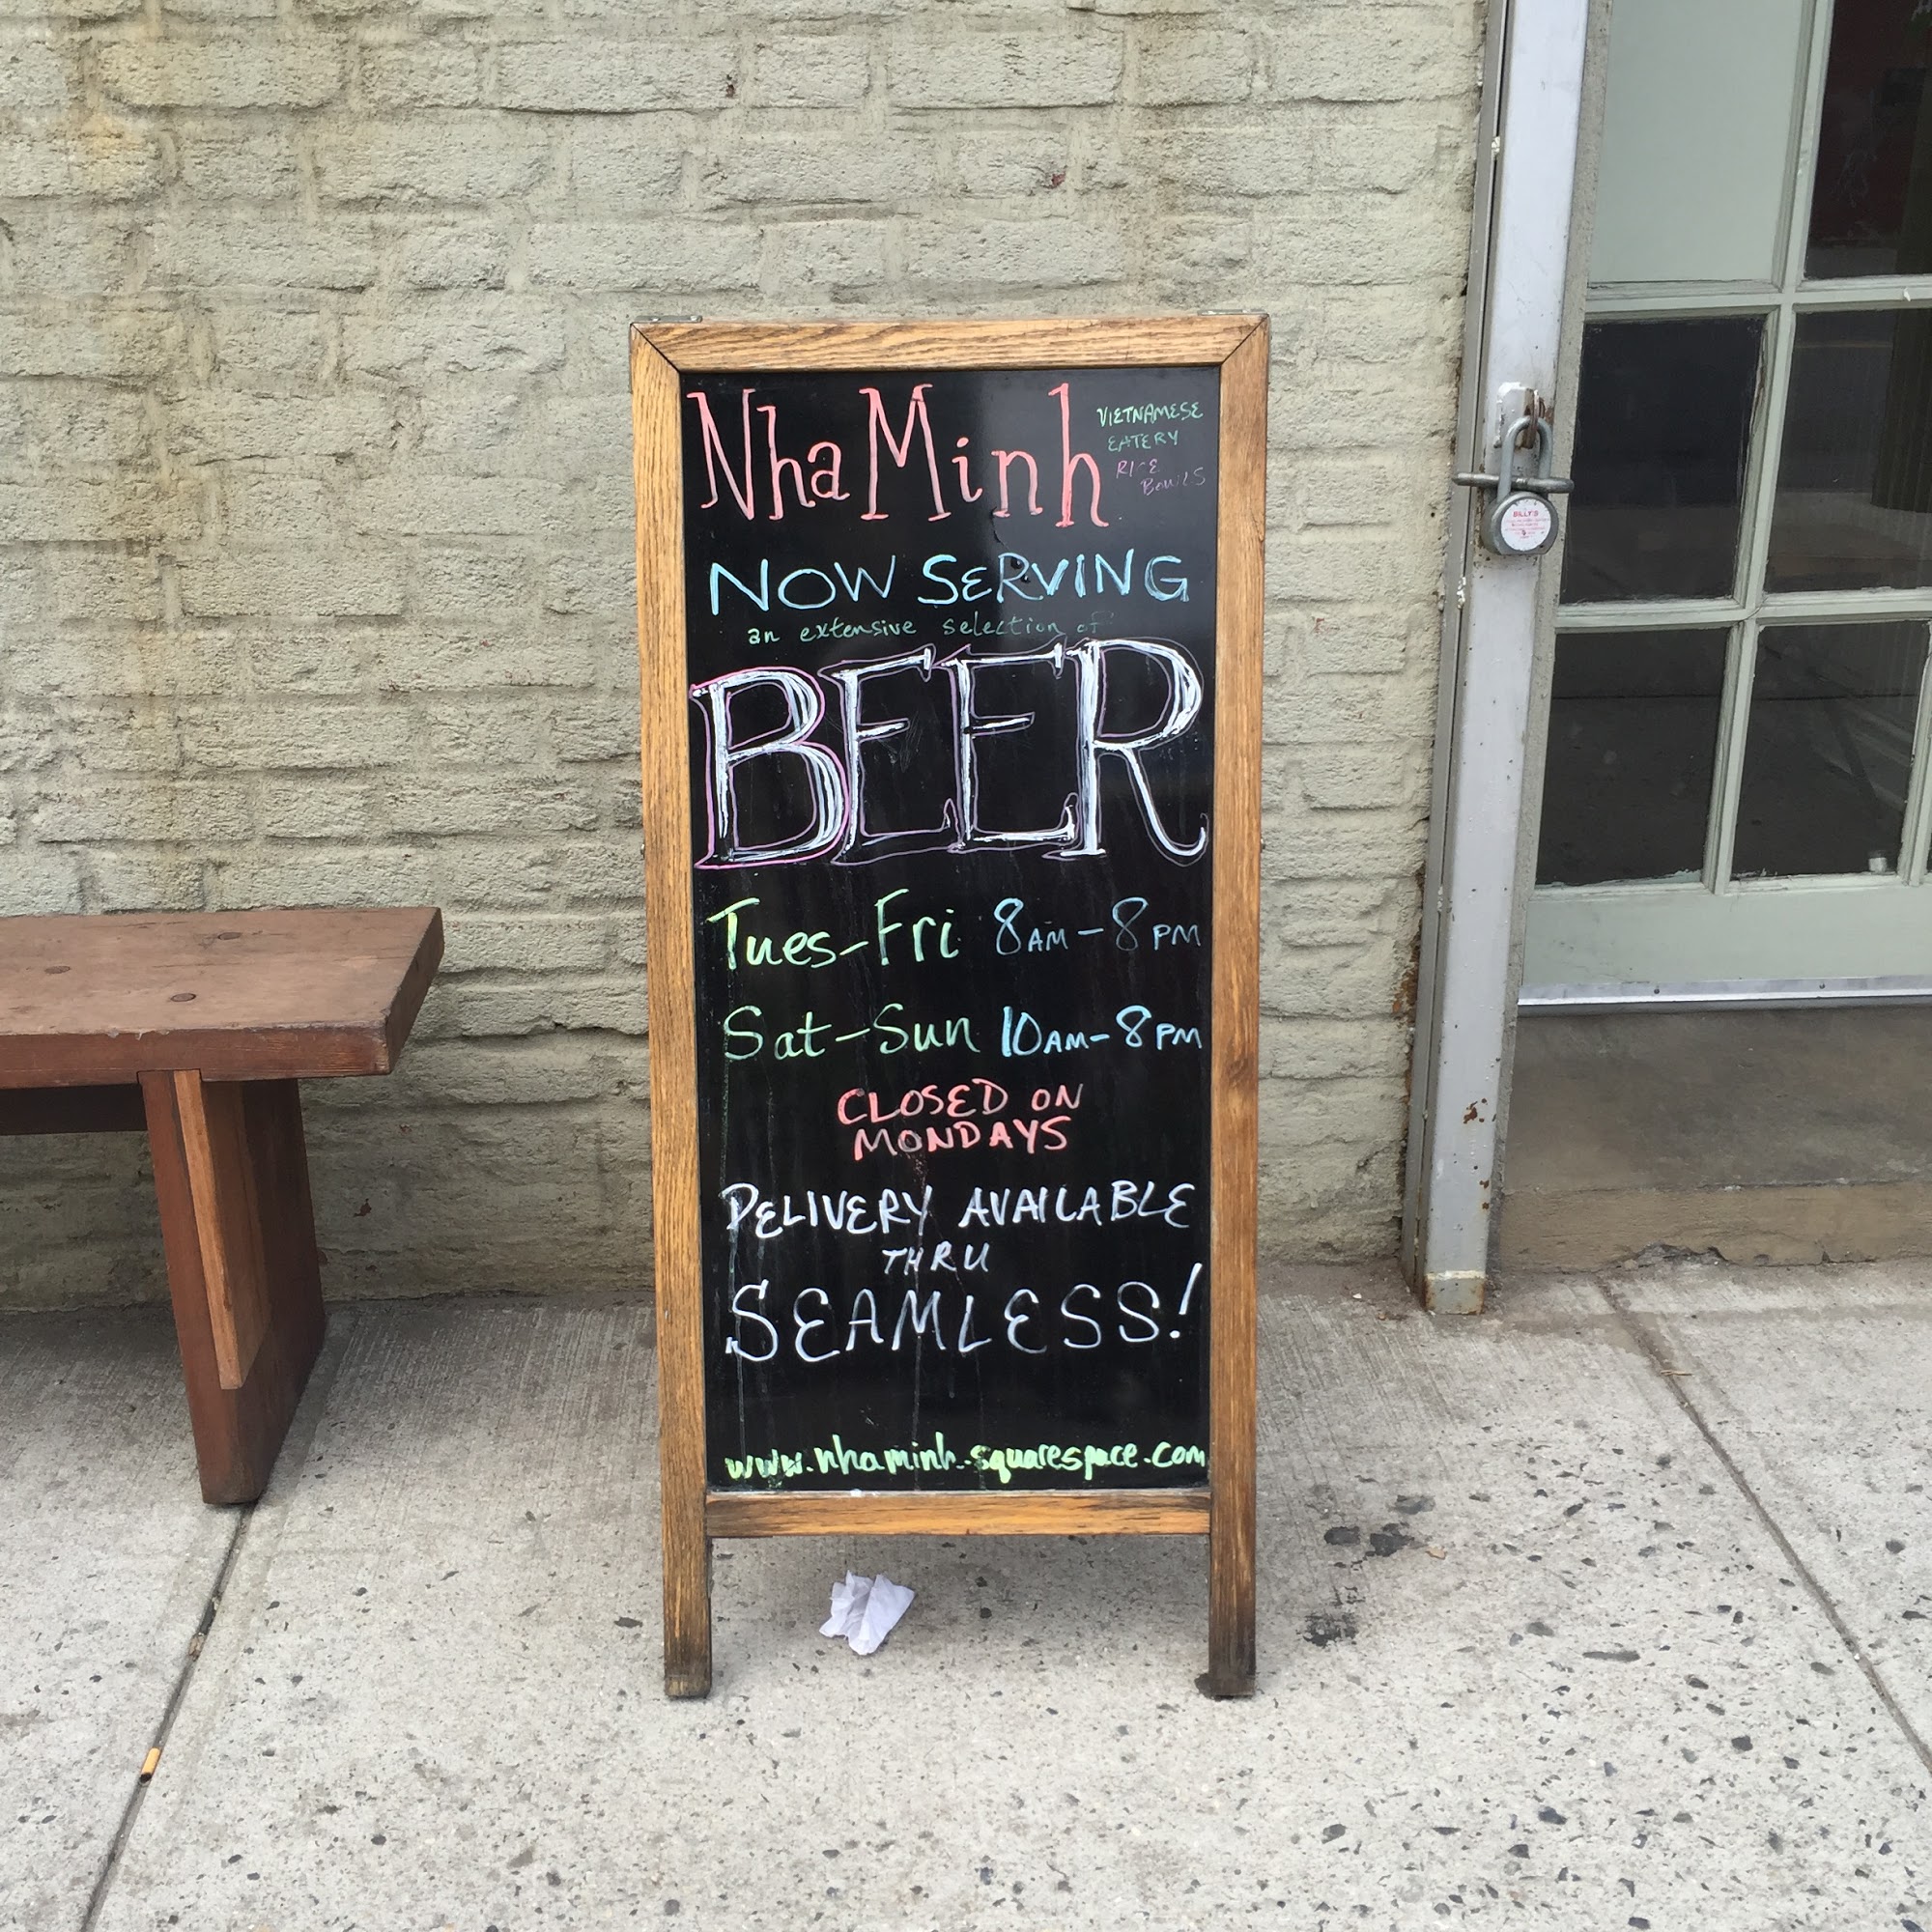 Nha Minh
VIETNAMESE
EATERY
RICE
BOWLS
NOW SERVING
an extensive selection of
BEER
Tues-Fri 8AM-8PM
Sat-Sun 10AM-8PM
CLOSED ON
MONDAYS
DELIVERY AVAILABLE
THRU
SEAMLESS!
www.nhaminh.squarespace.com
BILLY'S